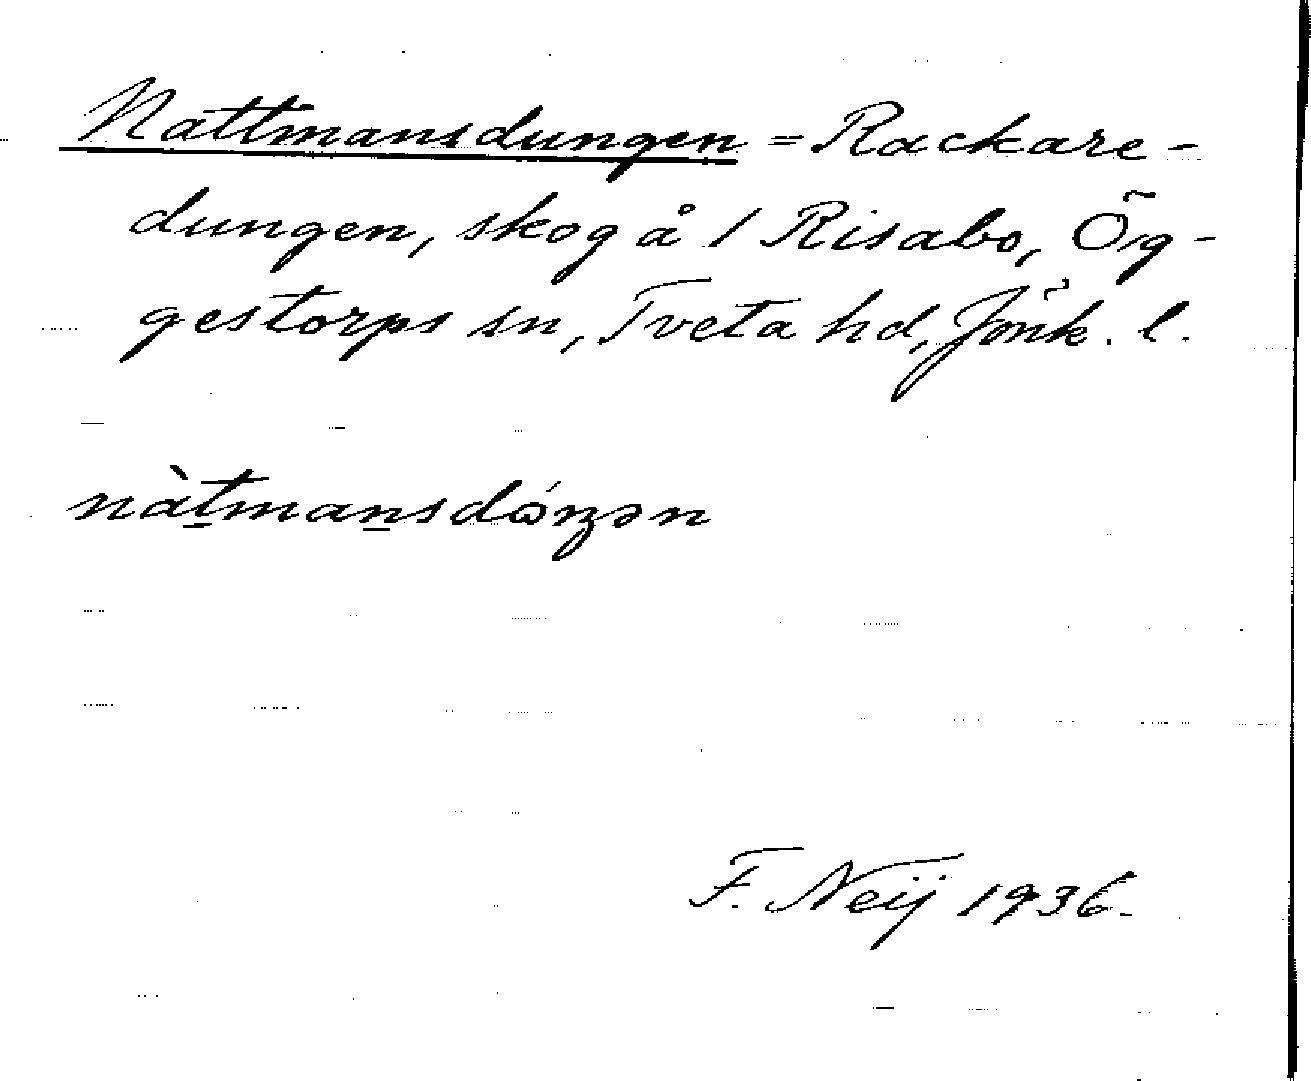 Nattmansdungen = Rackare-
dungen, skog å 1 Risabo, Ög-
gestorps sn, Tveta hd, Jönk. l.
nàt̲man̲sdɷ́ŋən
F. Neij 1936.